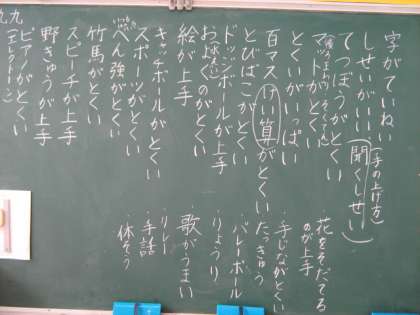 字がていねい
しせいがいい(手の上げ方)
(聞くしせい)
てつぼうがとくい
マットがとくい
とくいがいっぱい
百マスけい算がとくい
とびばこがとくい
ドッジボールが上手
およぐのがとくい
絵が上手
キャッチボールがとくい
スポーツがとくい
べん強がとくい
竹馬がとくい
スピーチが上手
野きゅうが上手
ピアノがとくい
(エレクトーン)
九九
花をそだてる
のが上手
・手じながとくい
・たっきゅう
・バレーボール
・りょうり
・歌がうまい
・リレー
・手話
・体そう